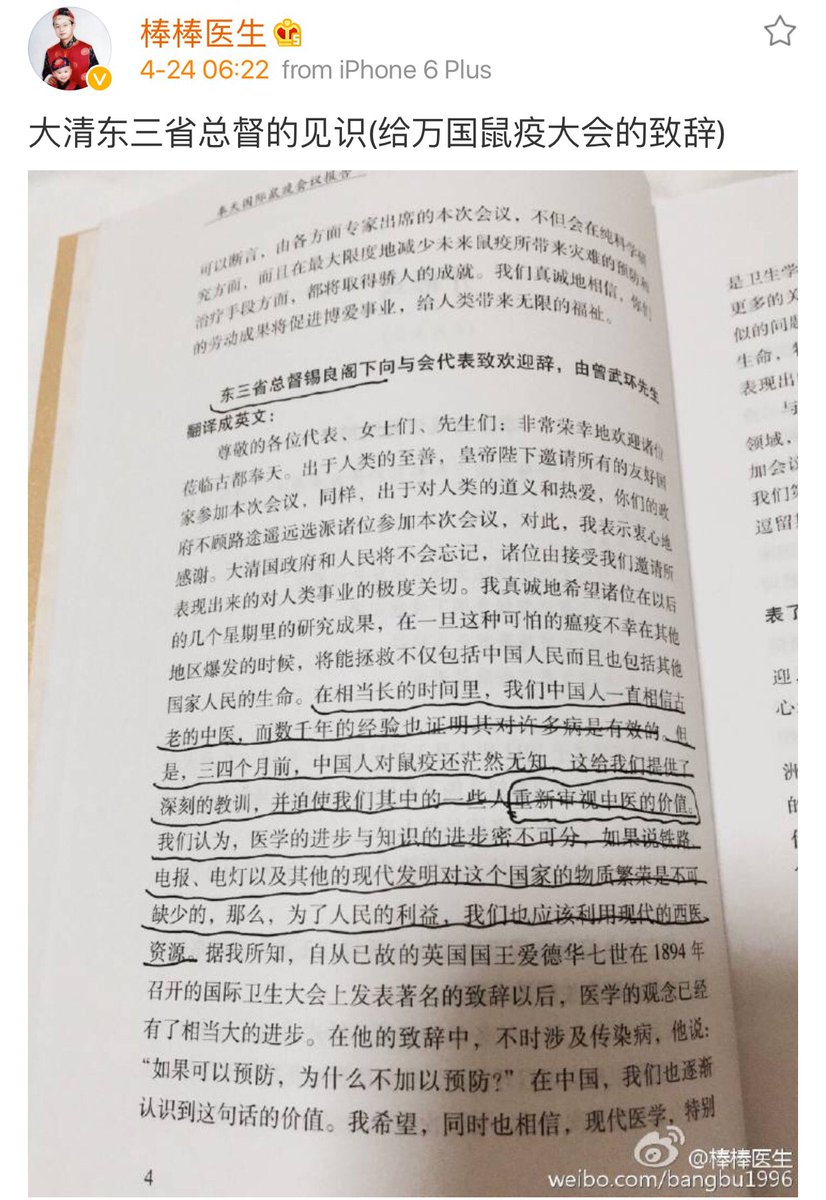 棒棒医生
4-24 06:22 from iPhone 6 Plus
大清东三省总督的见识(给万国鼠疫大会的致辞)
奉天国际鼠疫会议报告
可以断言，由各方面专家出席的本次会议，不但会在纯科学研
究方面，而且在最大限度地减少未来鼠疫所带来灾难的预防和
治疗手段方面，都将取得骄人的成就。我们真诚地相信，你们
的劳动成果将促进博爱事业，给人类带来无限的福祉。
东三省总督锡良阁下向与会代表致欢迎辞，由曾武环先生
翻译成英文：
尊敬的各位代表、女士们、先生们：非常荣幸地欢迎诸位
莅临古都奉天。出于人类的至善，皇帝陛下邀请所有的友好国
家参加本次会议，同样，出于对人类的道义和热爱，你们的政
府不顾路途遥远选派诸位参加本次会议，对此，我表示衷心地
感谢。大清国政府和人民将不会忘记，诸位由接受我们邀请所
表现出来的对人类事业的极度关切。我真诚地希望诸位在以后
的几个星期里的研究成果，在一旦这种可怕的瘟疫不幸在其他
地区爆发的时候，将能拯救不仅包括中国人民而且也包括其他
国家人民的生命。在相当长的时间里，我们中国人一直相信古
老的中医，而数千年的经验也证明其对许多病是有效的。但
是，三四个月前，中国人对鼠疫还茫然无知，这给我们提供了
深刻的教训，并迫使我们其中的一些人重新审视中医的价值。
我们认为，医学的进步与知识的进步密不可分，如果说铁路、
电报、电灯以及其他的现代发明对这个国家的物质繁荣是不可
缺少的，那么，为了人民的利益，我们也应该利用现代的西医
资源。据我所知，自从已故的英国国王爱德华七世在1894年
召开的国际卫生大会上发表著名的致辞以后，医学的观念已经
有了相当大的进步。在他的致辞中，不时涉及传染病，他说：
“如果可以预防，为什么不加以预防?”在中国，我们也逐渐
认识到这句话的价值。我希望，同时也相信，现代医学，特别
4
是卫生学
更多的关
似的问题
生命，
表现出
与
领域，
加会议
我们
逗留
表了
迎
心
洲
的
@棒棒医生
weibo.com/bangbu1996